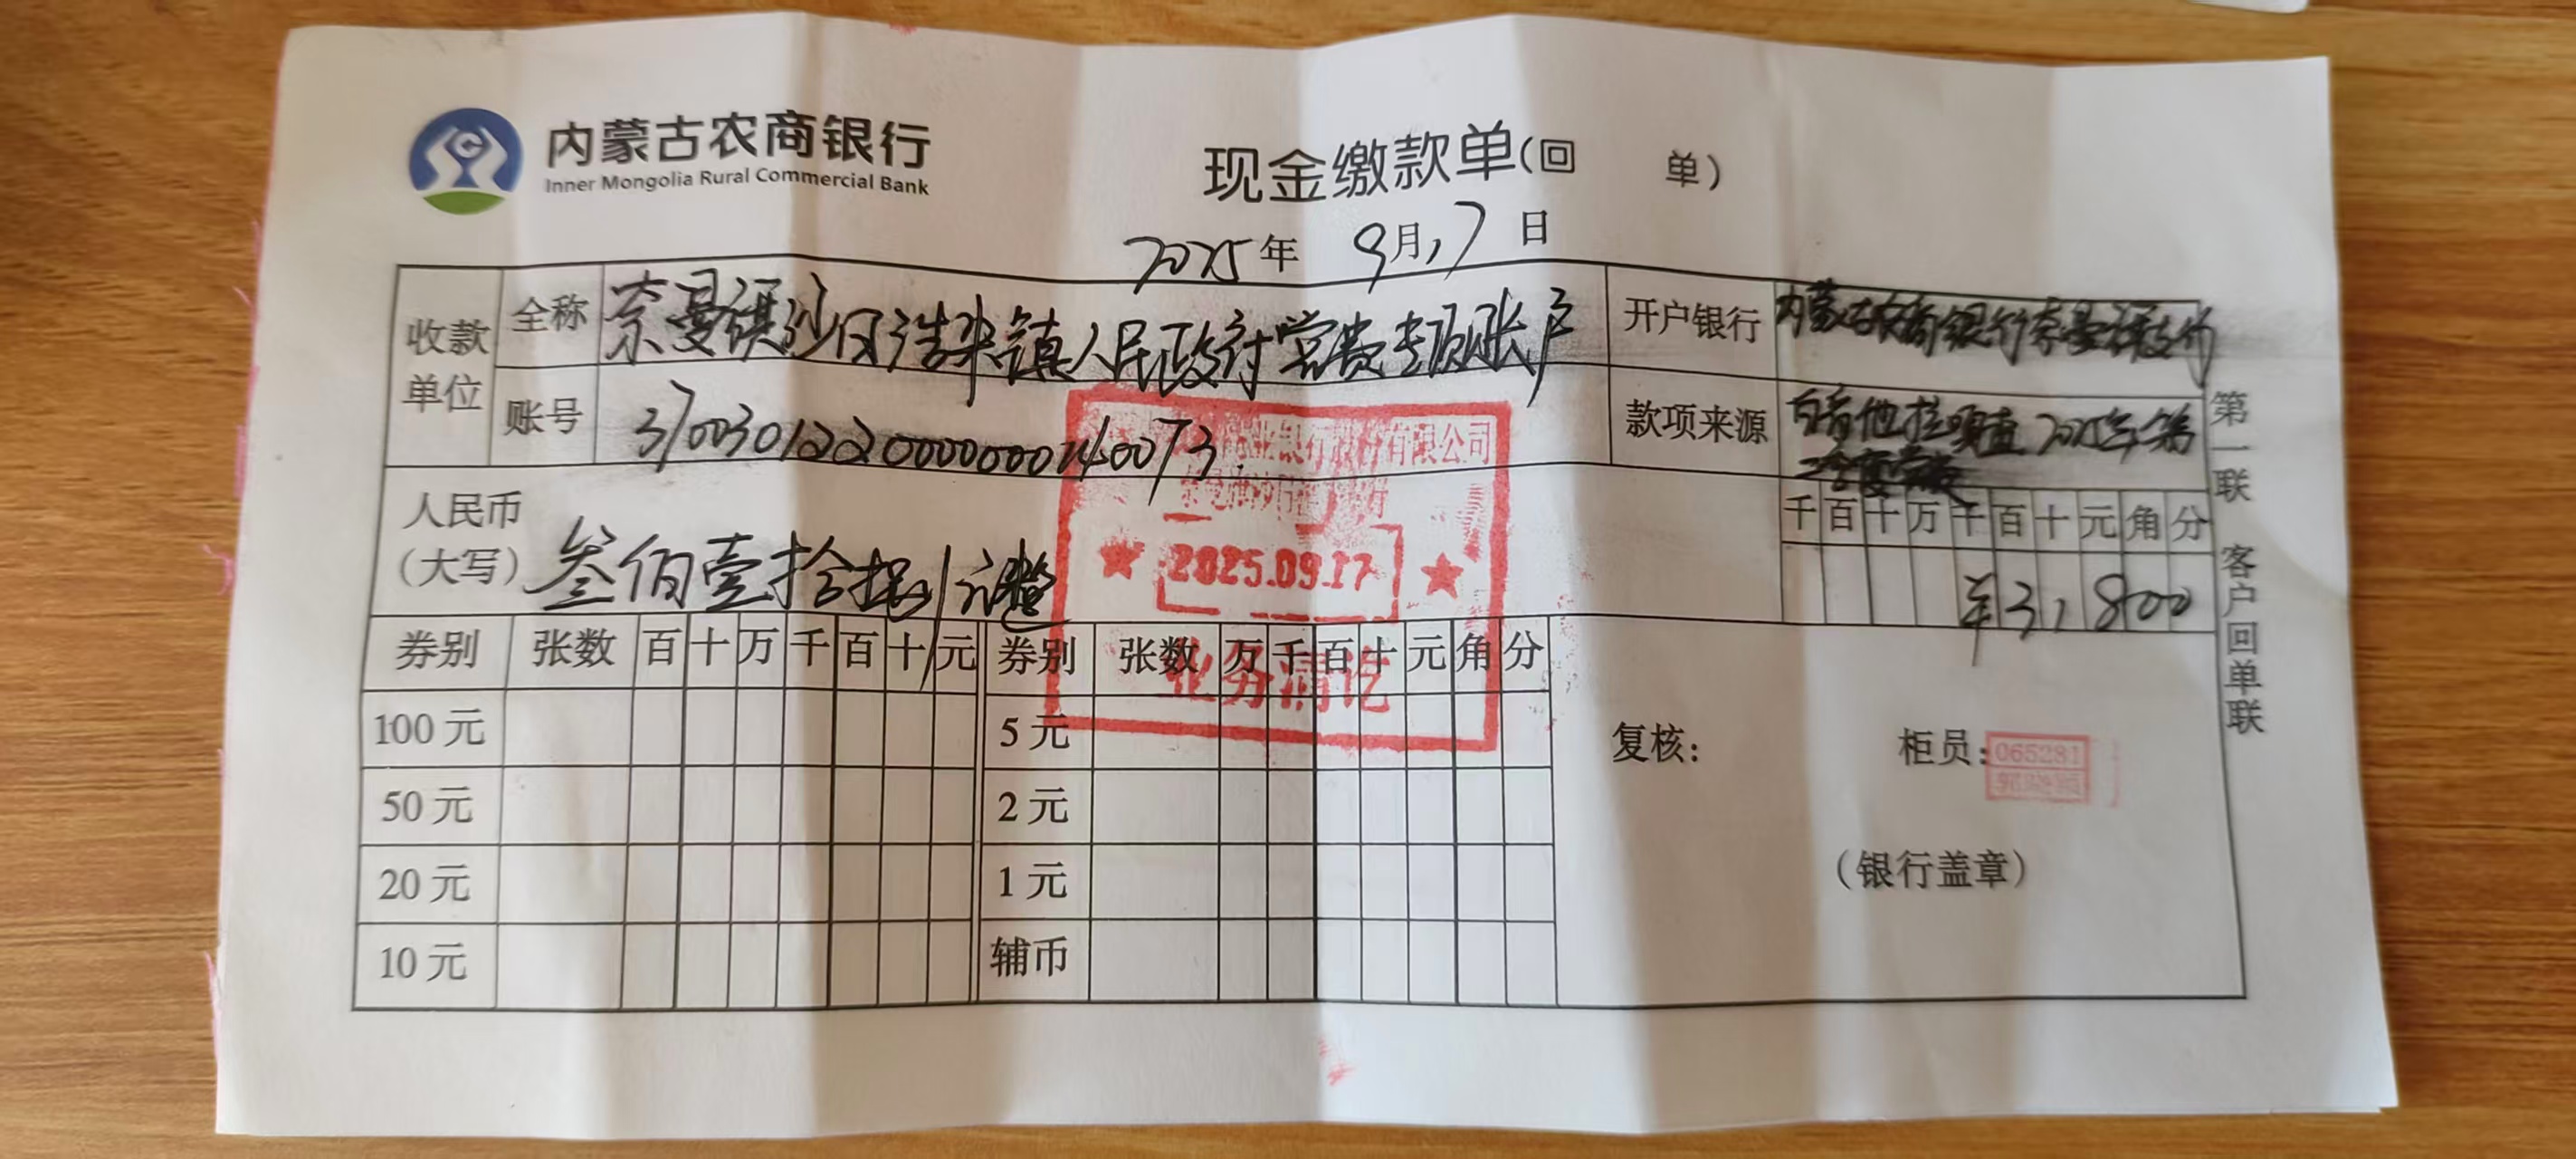 内蒙古农商银行
Inner Mongolia Rural Commercial Bank
现金缴款单(回 单)
2025年 9月17日
收款单位 全称 奈曼旗沙日浩来镇人民政府党费专项账户 开户银行 内蒙古农商银行奈曼旗支行
账号 款项来源 2025年第
人民币(大写) 叁佰壹拾捌元整 千 百 十 万 千 百 十 元 角 分
¥31800
业银行股份有限公司
2025.09.17
业务清讫
券别 张数 百 十 万 千 百 十 元 券别 张数 万 千 百 十 元 角 分
100元 5元
50元 2元
20元 1元
10元 辅币
复核: 柜员: 065281
(银行盖章)
第一联 客户回单联